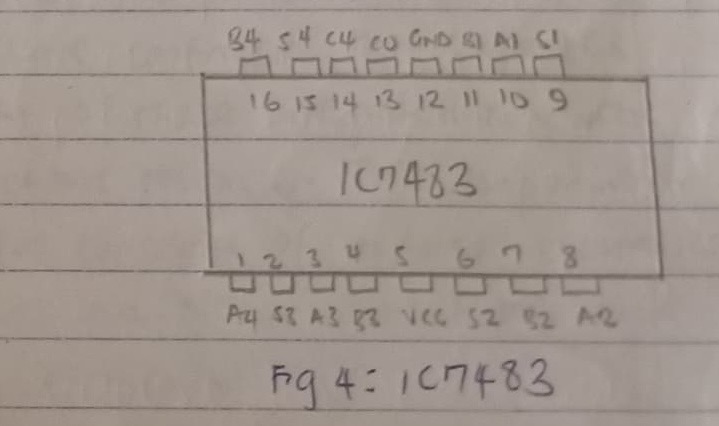 B4 S4 C4 C0 GND B1 A1 S1
16 15 14 13 12 11 10 9
IC7483
1 2 3 4 5 6 7 8
A4 S3 A3 B3 VCC S2 B2 A2
Fig 4: IC7483